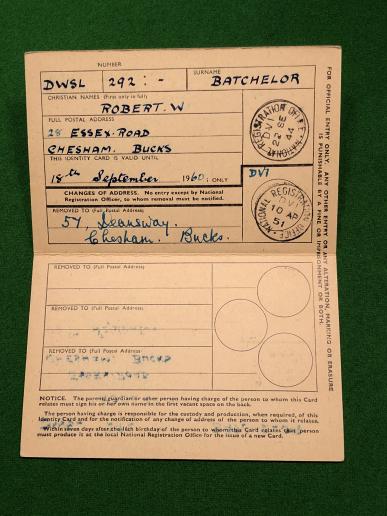 NUMBER
SURNAME
DWSL 292 : - BATCHELOR
CHRISTIAN NAMES (First only in full)
ROBERT. W
FULL POSTAL ADDRESS
28 ESSEX ROAD
CHESHAM. BUCKS
THIS IDENTITY CARD IS VALID UNTIL
18th September 1960 : ONLY
CHANGES OF ADDRESS. No entry except by National
Registration Officer, to whom removal must be notified.
REMOVED TO (Full Postal Address)
57, Deansway.
Chesham. Bucks.
NATIONAL REGISTRATION OFFICE
DVI
22 SE
44
DVI
NATIONAL REGISTRATION OFFICE
DVI
10 AP
51
FOR OFFICIAL ENTRY ONLY. ANY OTHER ENTRY OR ANY ALTERATION, MARKING OR ERASURE
IS PUNISHABLE BY A FINE OR IMPRISONMENT OR BOTH.
REMOVED TO (Full Postal Address)
REMOVED TO (Full Postal Address)
REMOVED TO (Full Postal Address)
NOTICE. The parent, guardian or other person having charge of the person to whom this Card
relates must sign his or her own name in the first vacant space on the back.
The person having charge is responsible for the custody and production, when required, of this
Identity Card and for the notification of any change of address of the person to whom it relates.
Within seven days after the 16th birthday of the person to whom this Card relates that person
must produce it at the local National Registration Office for the issue of a new Card.